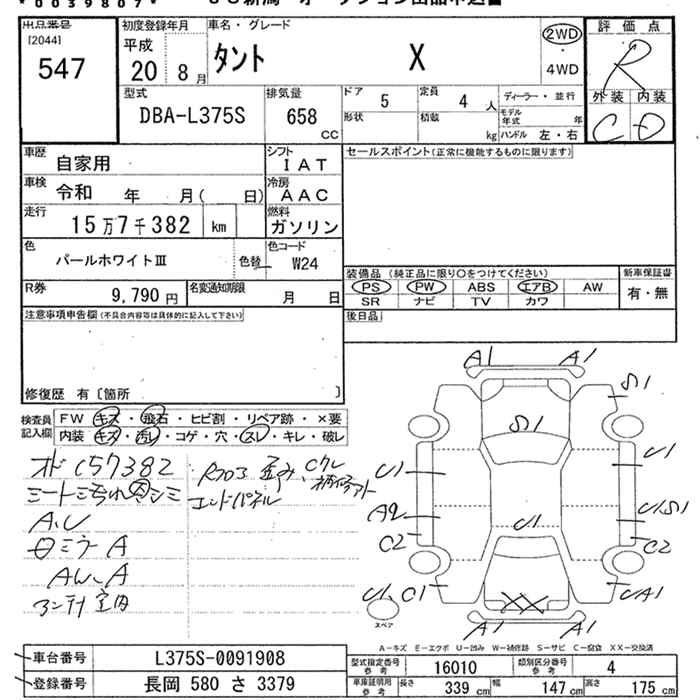 *0039807*
出品番号
[2044]
547
初度登録年月
平成
20 8月
車名・グレード
タント X
2WD
4WD
評価点
R
外装 内装
C D
型式
DBA-L375S
排気量
658
CC
ドア 5
形状
定員 4 人
積載 kg
ディーラー・並行
モデル年式 年
ハンドル 左・右
車歴 自家用
シフト IAT
セールスポイント(正常に機能するものに限ります)
車検 令和 年 月( 日)
冷房 AAC
走行 15万7千382 km
燃料 ガソリン
色 パールホワイトⅢ
色替
色コード W24
装備品(純正品に限り○をつけてください)
新車保証書
PS PW ABS エアB AW
有・無
SR ナビ TV カワ
R券 9,790円
名変通知期限 月 日
後日品
注意事項申告欄(不具合内容等は具体的に記入して下さい)
修復歴 有〔箇所 〕
検査員記入欄
FW キズ・飛石・ヒビ割・リペア跡・×要
内装 キズ・汚レ・コゲ・穴・スレ・キレ・破レ
157382
A、U
ミラー A
AW、A
エンドパネル
A1 A1
S1
S1
U1 U1
A2 U1 U1S1
C2 C2
U1、C1 XX UA1
A1 A1
スペア
A-キズ E-エクボ U-凹み W-補修跡 S-サビ C-腐食 XX-交換済
車台番号 L375S-0091908
型式指定番号 参考 16010
類別区分番号 参考 4
登録番号 長岡 580 さ 3379
車庫証明用 参考
長さ 339 cm
幅 147 cm
高さ 175 cm